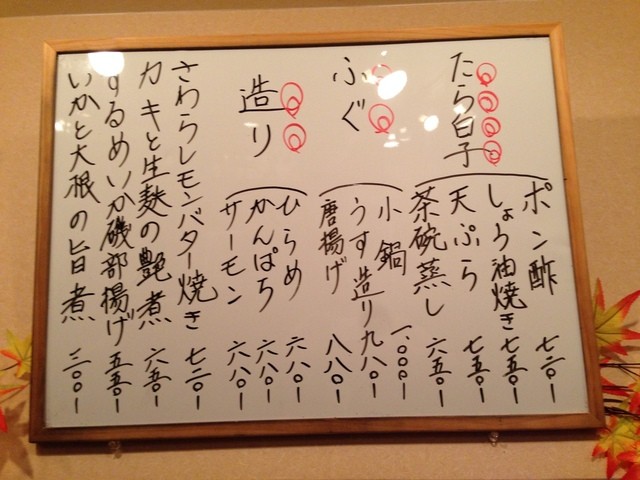 たら白子
ポン酢 七二〇ー
しょう油焼き 七五〇ー
天ぷら 七五〇ー
茶碗蒸し 六五〇ー
ふぐ
小鍋 一、〇〇〇ー
うす造り 九八〇ー
唐揚げ 八八〇ー
造り
ひらめ 六八〇ー
かんぱち 六八〇ー
サーモン 六八〇ー
さわらレモンバター焼き 七二〇ー
カキと生麩の艶煮 六五〇ー
するめいか磯部揚げ 五五〇ー
いかと大根の旨煮 三〇〇ー